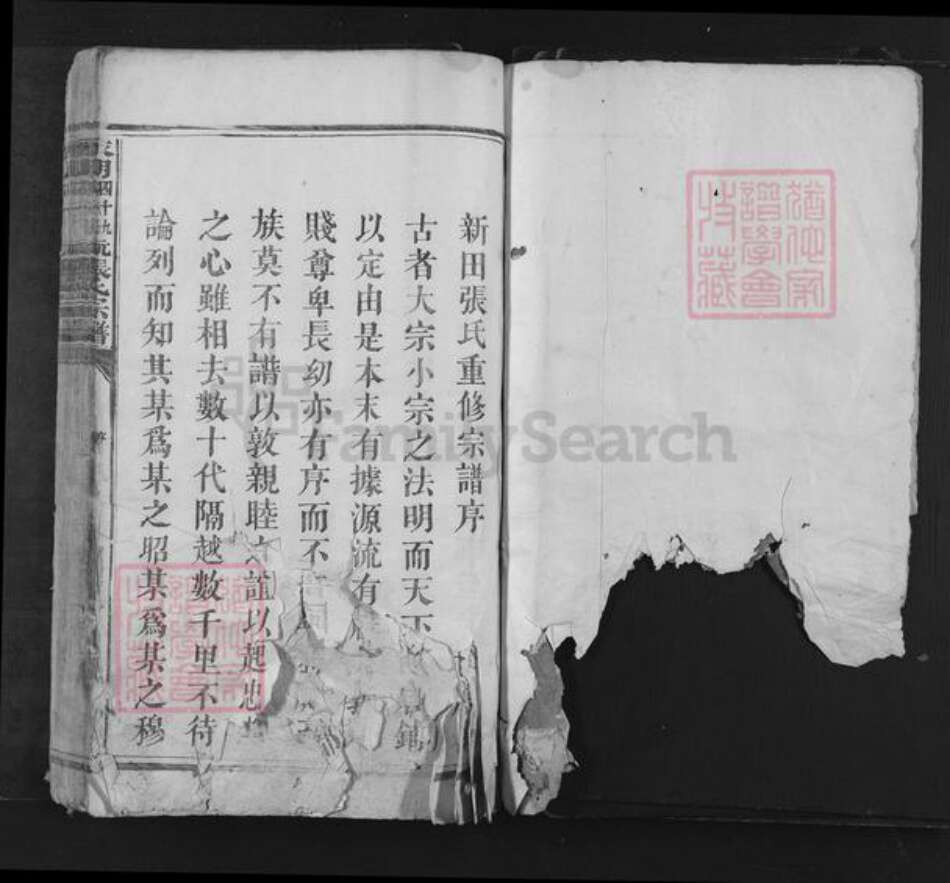 新田張氏重修宗譜序
古者大宗小宗之法明而天下
以定由是本末有據源流有
賤尊卑長幼亦有序而不
族莫不有譜以敦親睦之誼以起忠
之心雖相去數十代隔越數千里不待
論列而知其某爲某之昭某爲某之穆
張氏宗譜
序
猶他家譜學會特藏
猶他家譜學會特藏
FamilySearch